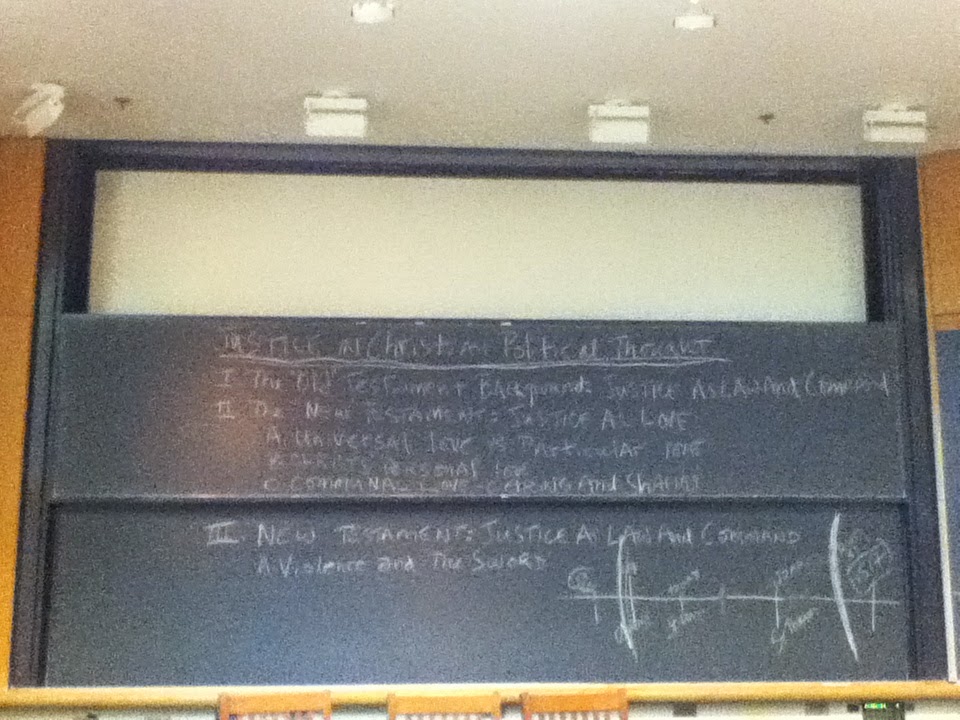 JUSTICE IN Christian Political Thought
I The "Old" Testament Background: Justice As Law And Command
II The New Testament: Justice As Love
A. Universal love vs Particular love
Personal love
C Communal Love - Caring and Sharing
III New Testament: Justice As Law And Command
A Violence and The Sword